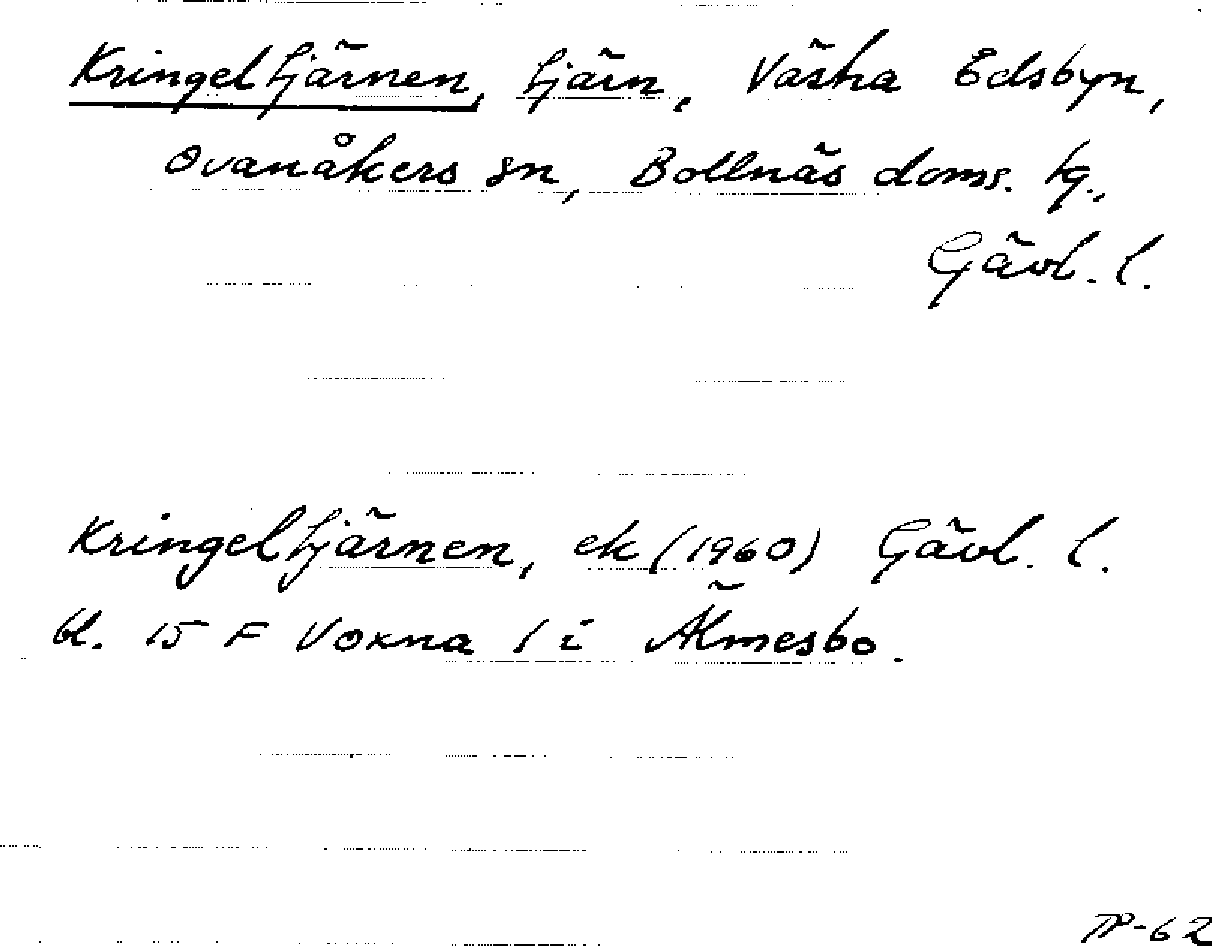 Kringeltjärnen, tjärn, Västra Edsbyn,
Ovanåkers sn, Bollnäs doms. tg.,
Gävl. l.
Kringeltjärnen, ek (1960) Gävl. l.
bl. 15 F Voxna l i Älmesbo.
TP-62